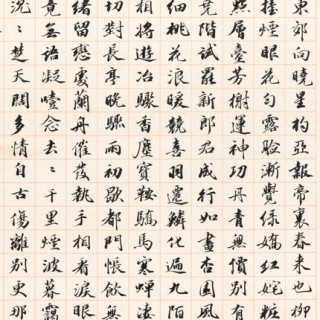 東郊向曉星杓亞報帝裏春來也柳
擡煙眼花勻露臉漸覺綠嬌紅姹粧
點層臺芳榭運神功丹青無價別有
堯階試罷新郎君成行如畫杏園風
細桃花浪暖競喜羽遷鱗化遍九陌
相將遊冶驟香塵寶鞍驕馬寒蟬淒
切對長亭晚驟雨初歇都門帳飲無
緒留戀處蘭舟催發執手相看淚眼
竟無語凝噎念去々千里煙波暮靄
沉々楚天闊多情自古傷離別更那